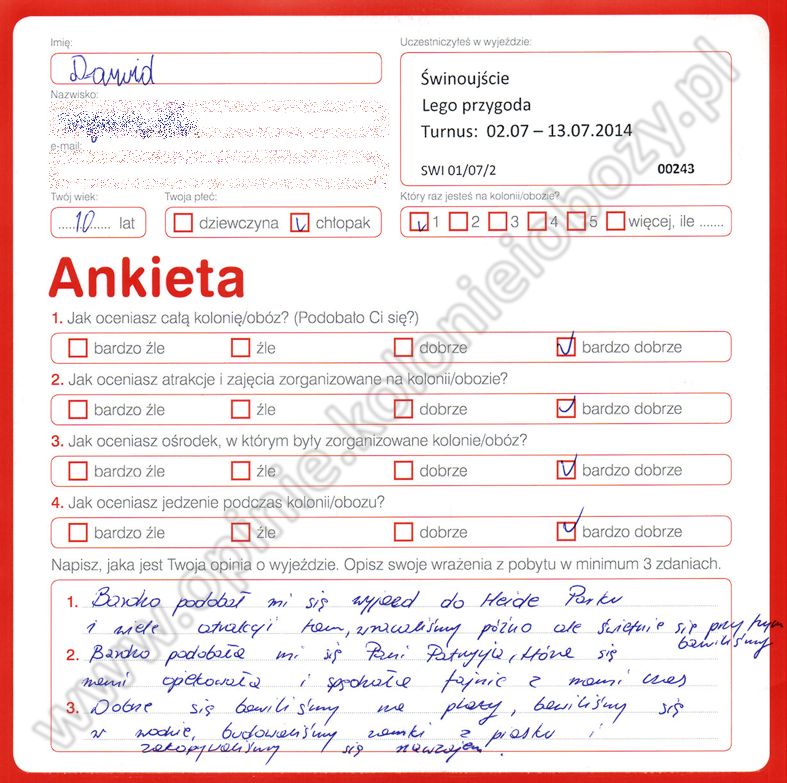 Imię:
Dawid
Uczestniczyłeś w wyjeździe:
Świnoujście
Lego przygoda
Turnus: 02.07 – 13.07.2014
SWI 01/07/2 00243
Nazwisko:
e-mail:
Twój wiek: Twoja płeć: Który raz jesteś na kolonii/obozie?
.....10...... lat dziewczyna chłopak 1 2 3 4 5 więcej, ile .......
Ankieta
1. Jak oceniasz całą kolonię/obóz? (Podobało Ci się?)
bardzo źle źle dobrze bardzo dobrze
2. Jak oceniasz atrakcje i zajęcia zorganizowane na kolonii/obozie?
bardzo źle źle dobrze bardzo dobrze
3. Jak oceniasz ośrodek, w którym były zorganizowane kolonie/obóz?
bardzo źle źle dobrze bardzo dobrze
4. Jak oceniasz jedzenie podczas kolonii/obozu?
bardzo źle źle dobrze bardzo dobrze
Napisz, jaka jest Twoja opinia o wyjeździe. Opisz swoje wrażenia z pobytu w minimum 3 zdaniach.
1. Bardzo podobał mi się wyjazd do Heide Parku
i wiele atrakcji tam, wracaliśmy późno ale świetnie się przy tym
bawiliśmy
2. Bardzo podobała mi się Pani Patrycja, która się
nami opiekowała i spędzała fajnie z nami czas
3. Dobrze się bawiliśmy na plaży, bawiliśmy się
w wodzie, budowaliśmy zamki z piasku i
zakopywaliśmy się nawzajem.
www.opinie.kolonieiobozy.pl